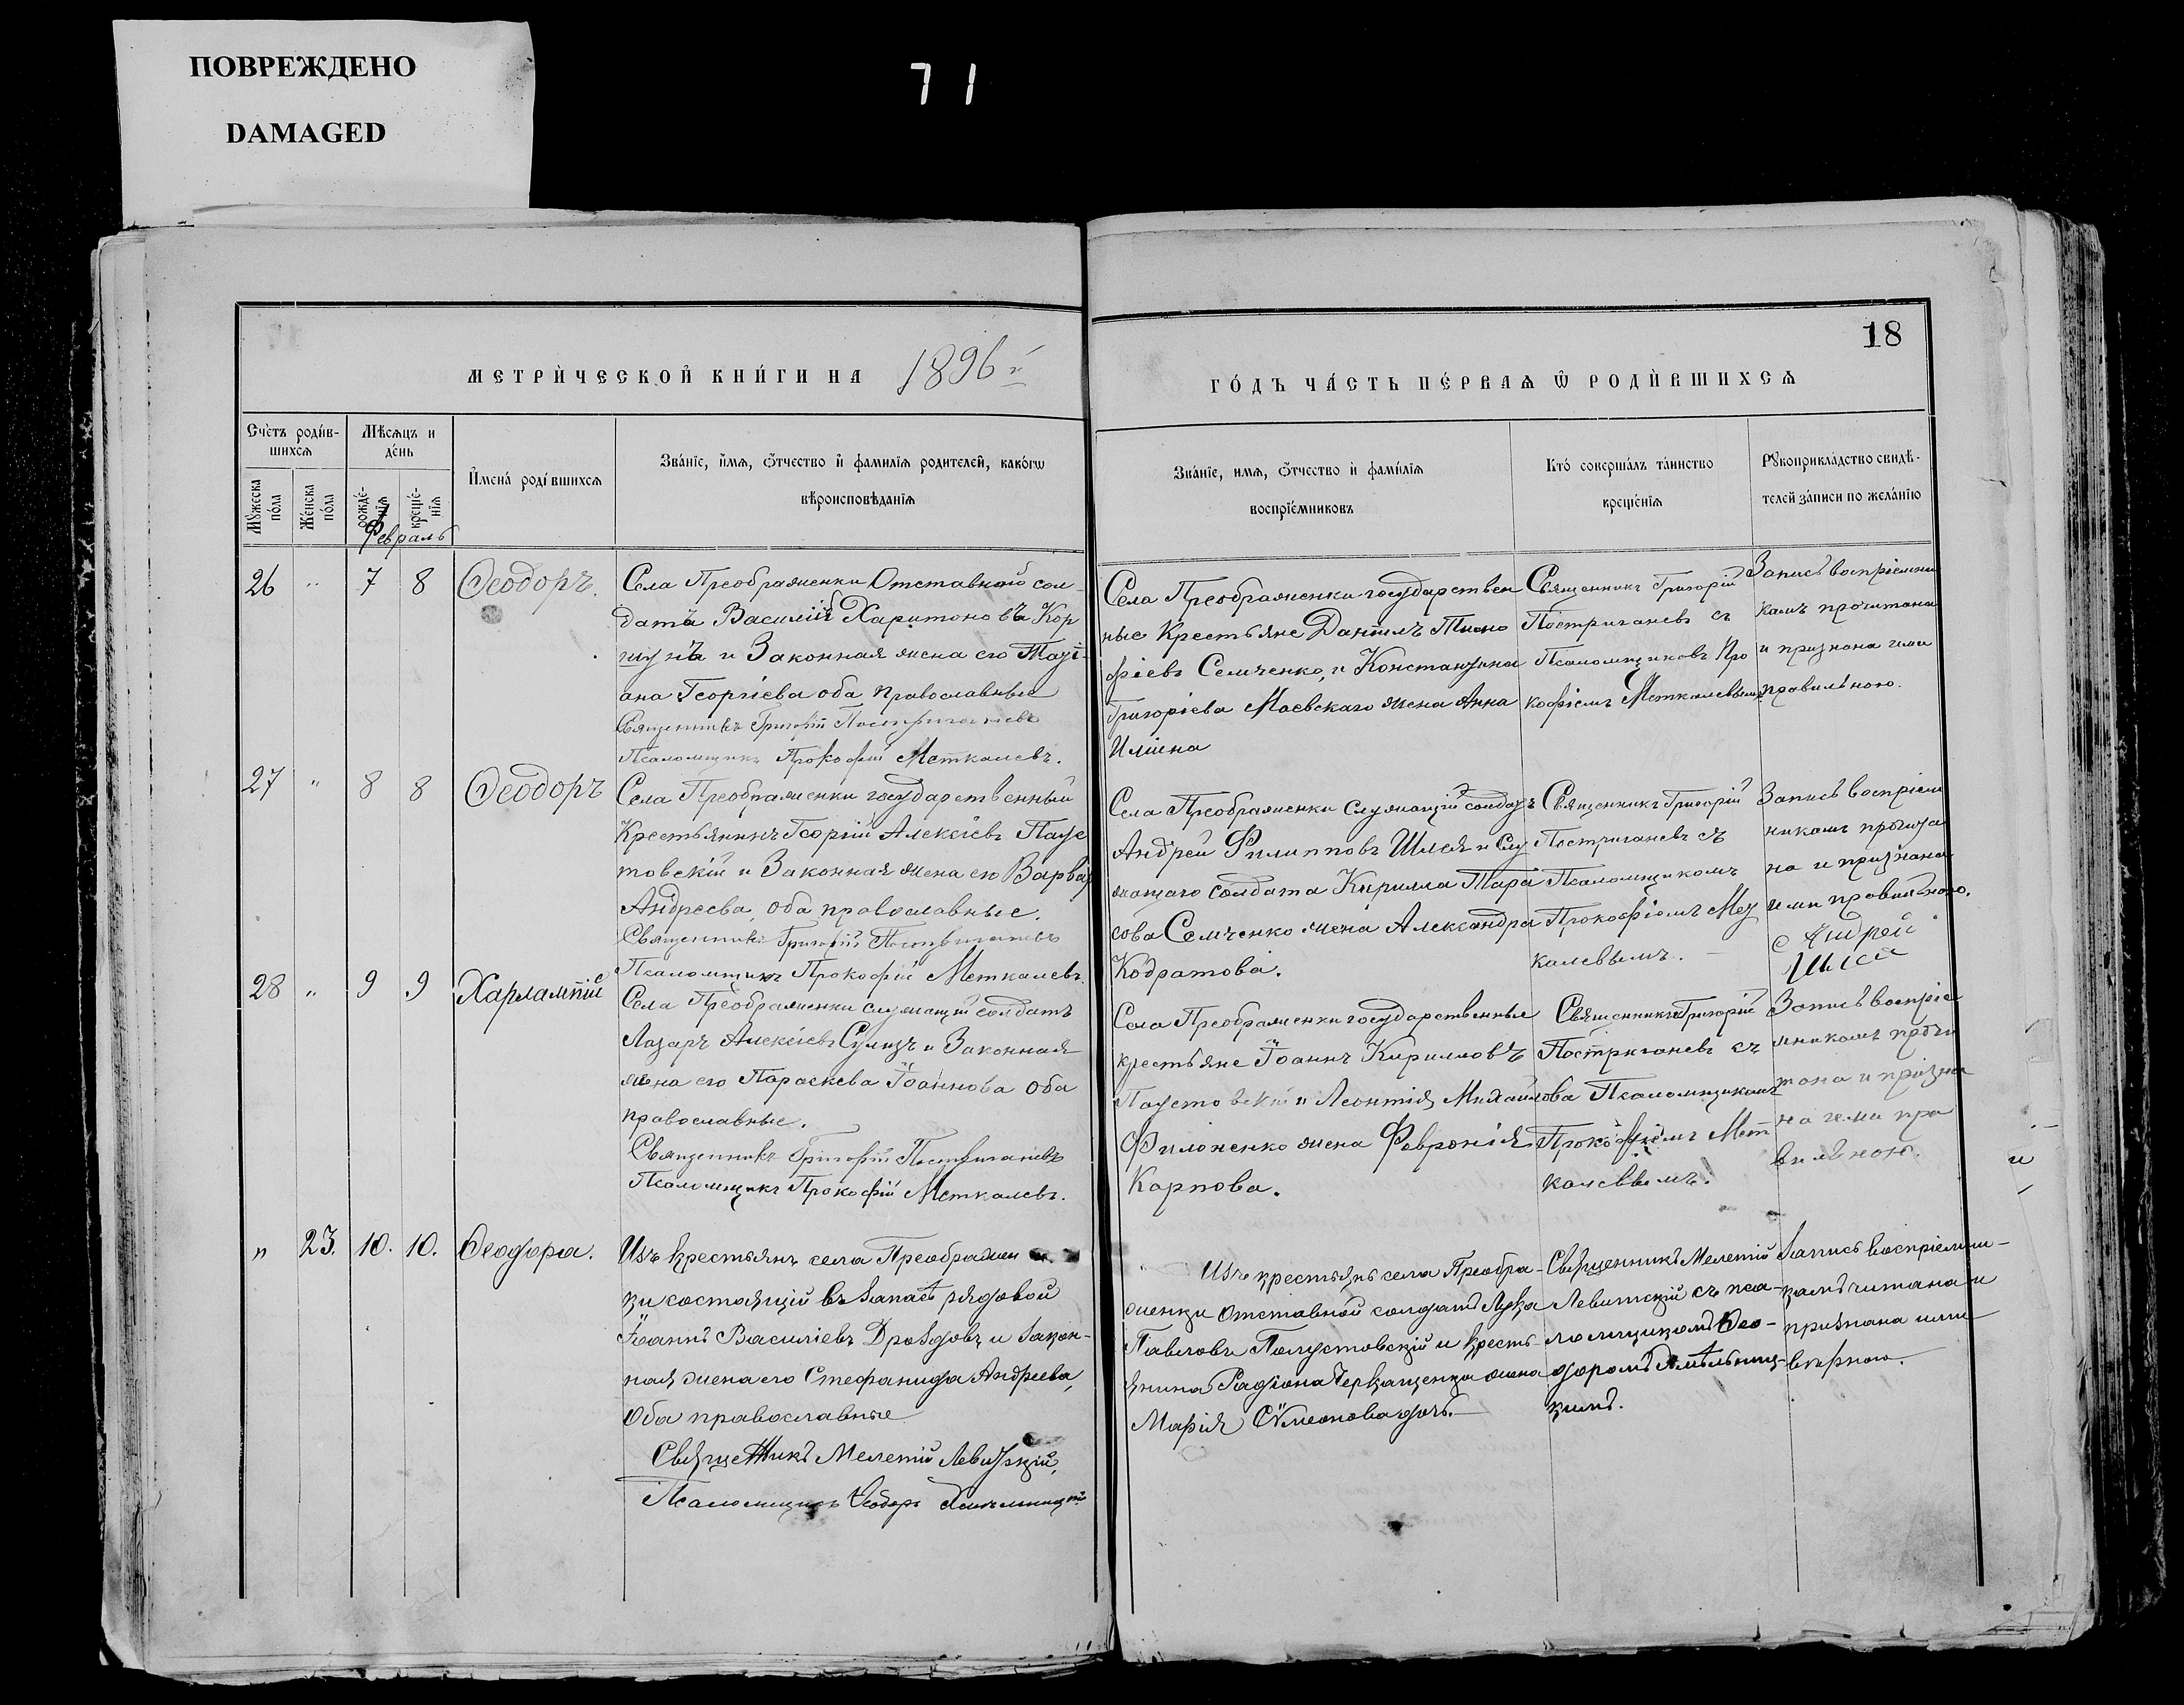 ПОВРЕЖДЕНО
DAMAGED
71
18
МЕТРИ́ЧЕСКОЙ КНИ́ГИ НА 1896й
ГО́ДЪ ЧА́СТЬ ПЕ́РВАѦ Ѿ РОДИ́ВШИХСѦ
Счѐтъ роди́в-
шихсѧ
Мѣ́сѧцъ и
де́нь
Мꙋ́жеска
по́ла
Же́нска
по́ла
рожде́-
нїѧ
креще́-
нїѧ
И҆мена̀ роди́вшихсѧ
Зва́нїе, и҆́мѧ, ѻ҆́тчество и҆ фамилїѧ родителей, како́гѡ
вѣроисповѣданїѧ
Зва́нїе, имѧ, ѻ҆́тчество и҆ фами́лїѧ
воспрїе́мниковъ
Кто̀ соверша́лъ та́инство
креще́нїѧ
Рꙋкоприкла́дство свидѣ́-
телей за́писи по жела́нїю
Февраль
26 " 7 8 Ѳеодоръ.
Села Преображенки Отставной сол-
датъ Василій Харитоновъ Кор
шунъ и Законная жена его Таті-
ана Георгіева оба православные
Священникъ Григорій Постриганевъ
Псаломщикъ Прокофій Меткалевъ.
Села Преображенки государствен
ные Крестьяне Даніилъ Тимо
фіевъ Семченко, и Константина
Григоріева Маевскаго жена Анна
Иліина
Священникъ Григорій
Постриганевъ съ
Псаломщиковъ Про
кофіемъ Меткалевымъ
Запись воспріемни
камъ прочитана
и признана ими
правильною.
27 " 8 8 Ѳеодоръ
Села Преображенки государственный
Крестьянинъ Георгій Алексіевъ Паус
товскій и Законная жена его Варвар
Андреева, оба православные.
Священникъ Григорій Постриганевъ
Псаломщикъ Прокофій Меткалевъ.
Села Преображенки Служащій солдатъ
Андрей Филипповъ Шлея и Слу
жащаго солдата Кирилла Тара
сова Семченко жена Александра
Кодратова.
Священникъ Григорій
Постриганевъ съ
Псаломщикомъ
Прокофіемъ Мет
калевымъ.
Запись воспріем
никамъ прочита
на и признана
ими правильною.
Андрей
28 " 9 9 Харлампій
Села Преображенки служащій солдатъ
Лазарь Алексіевъ и Законная
жена его Параскева Іоаннова Оба
православные.
Священникъ Григорій Постриганевъ
Псаломщикъ Прокофій Меткалевъ.
Села Преображенки государственные
крестьяне Іоаннъ Кирилловъ
Паустовскій и Леонтія Михайлова
Филоненко жена Февронія
Карпова.
Священникъ Григорій
Постриганевъ съ
Псаломщикомъ
Прокофіемъ Мет
калевымъ.
Запись воспріе
мникамъ прочи
тана и призна
на ими пра
вильною.
" 23. 10. 10. Ѳеодора.
Изъ крестьянъ села Преображен
ки состоящій въ запасѣ рядовой
Іоаннъ Василіевъ Дроздовъ и закон-
ная жена его Стефанида Андреева,
Оба православные
Священникъ Мелетій Левитскій,
Псаломщикъ Ѳеодоръ
Изъ крестьянъ села Преобра-
женки отставной солдатъ Лука
Павловъ Паустовскій и кресть-
янина Радіона Черкащенки жена
Марія Сѵмеонова дочь.
Священникъ Мелетій
Левитскій съ пса-
ломщикомъ Ѳео-
доромъ
кимъ.
Запись воспріемни-
камъ читана и
признана ими
вѣрною.